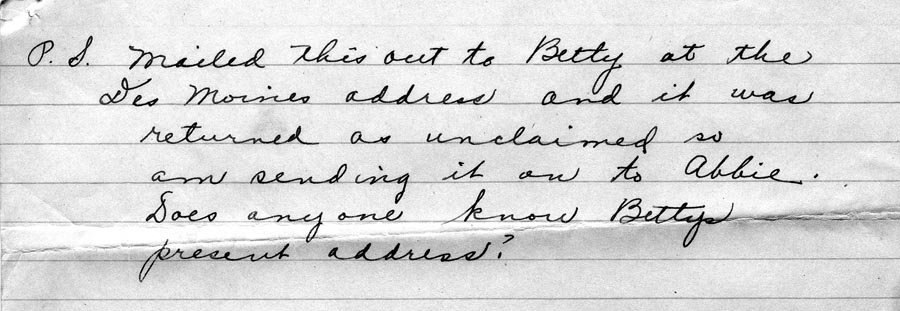 P. S. Mailed this out to Betty at the
Des Moines address and it was
returned as unclaimed so
am sending it on to Abbie.
Does anyone know Bettys
present address?